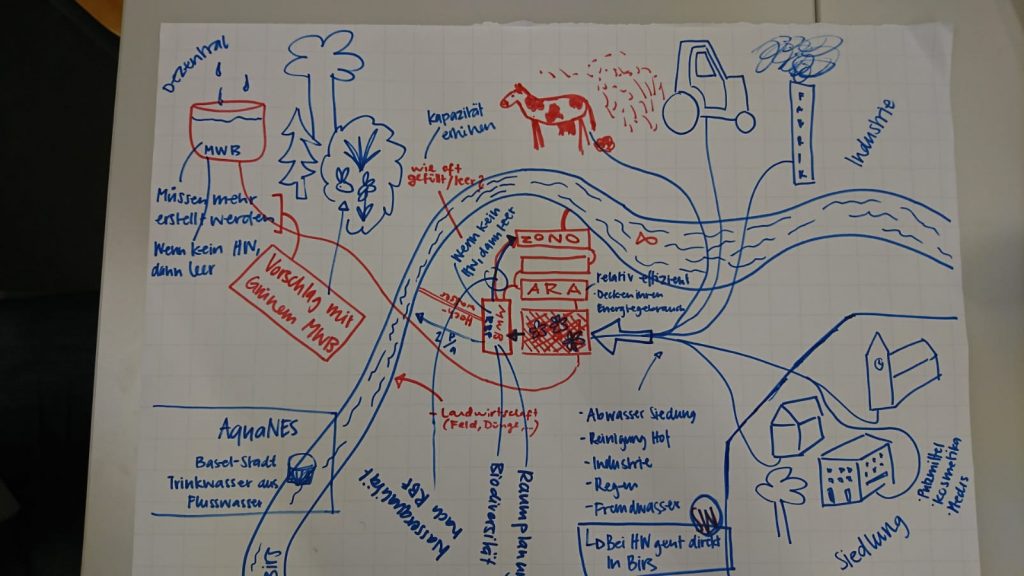 Dezentral
MWB
Müssen mehr
erstellt werden
Wenn kein HW,
dann leer
Vorschlag mit
Grünem MWB
Kapazität
erhöhen
wie oft
gefüllt/leer?
Wenn kein
HW, dann leer
FABRIK
Industrie
OZONO
ARA
relativ effizient
Decken ihren
Energiegebrauch
MWB
Hoch-
wasser
- Landwirtschaft
(Feld, Dünge,...)
AquaNES
Basel-Stadt
Trinkwasser aus
Flusswasser
Wasserqualität!
nach RBF
Biodiversität
Raumplanung
- Abwasser Siedlung
- Reinigung Hof
- Industrie
- Regen
- Fremdwasser
HW
Bei HW geht direkt
in Birs
Putzmittel
Kosmetika
Medis
Siedlung